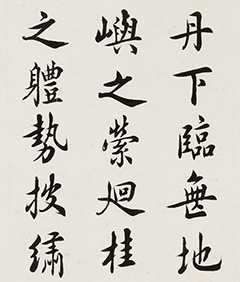 丹下臨無地
嶼之縈廻桂
之體勢披繡